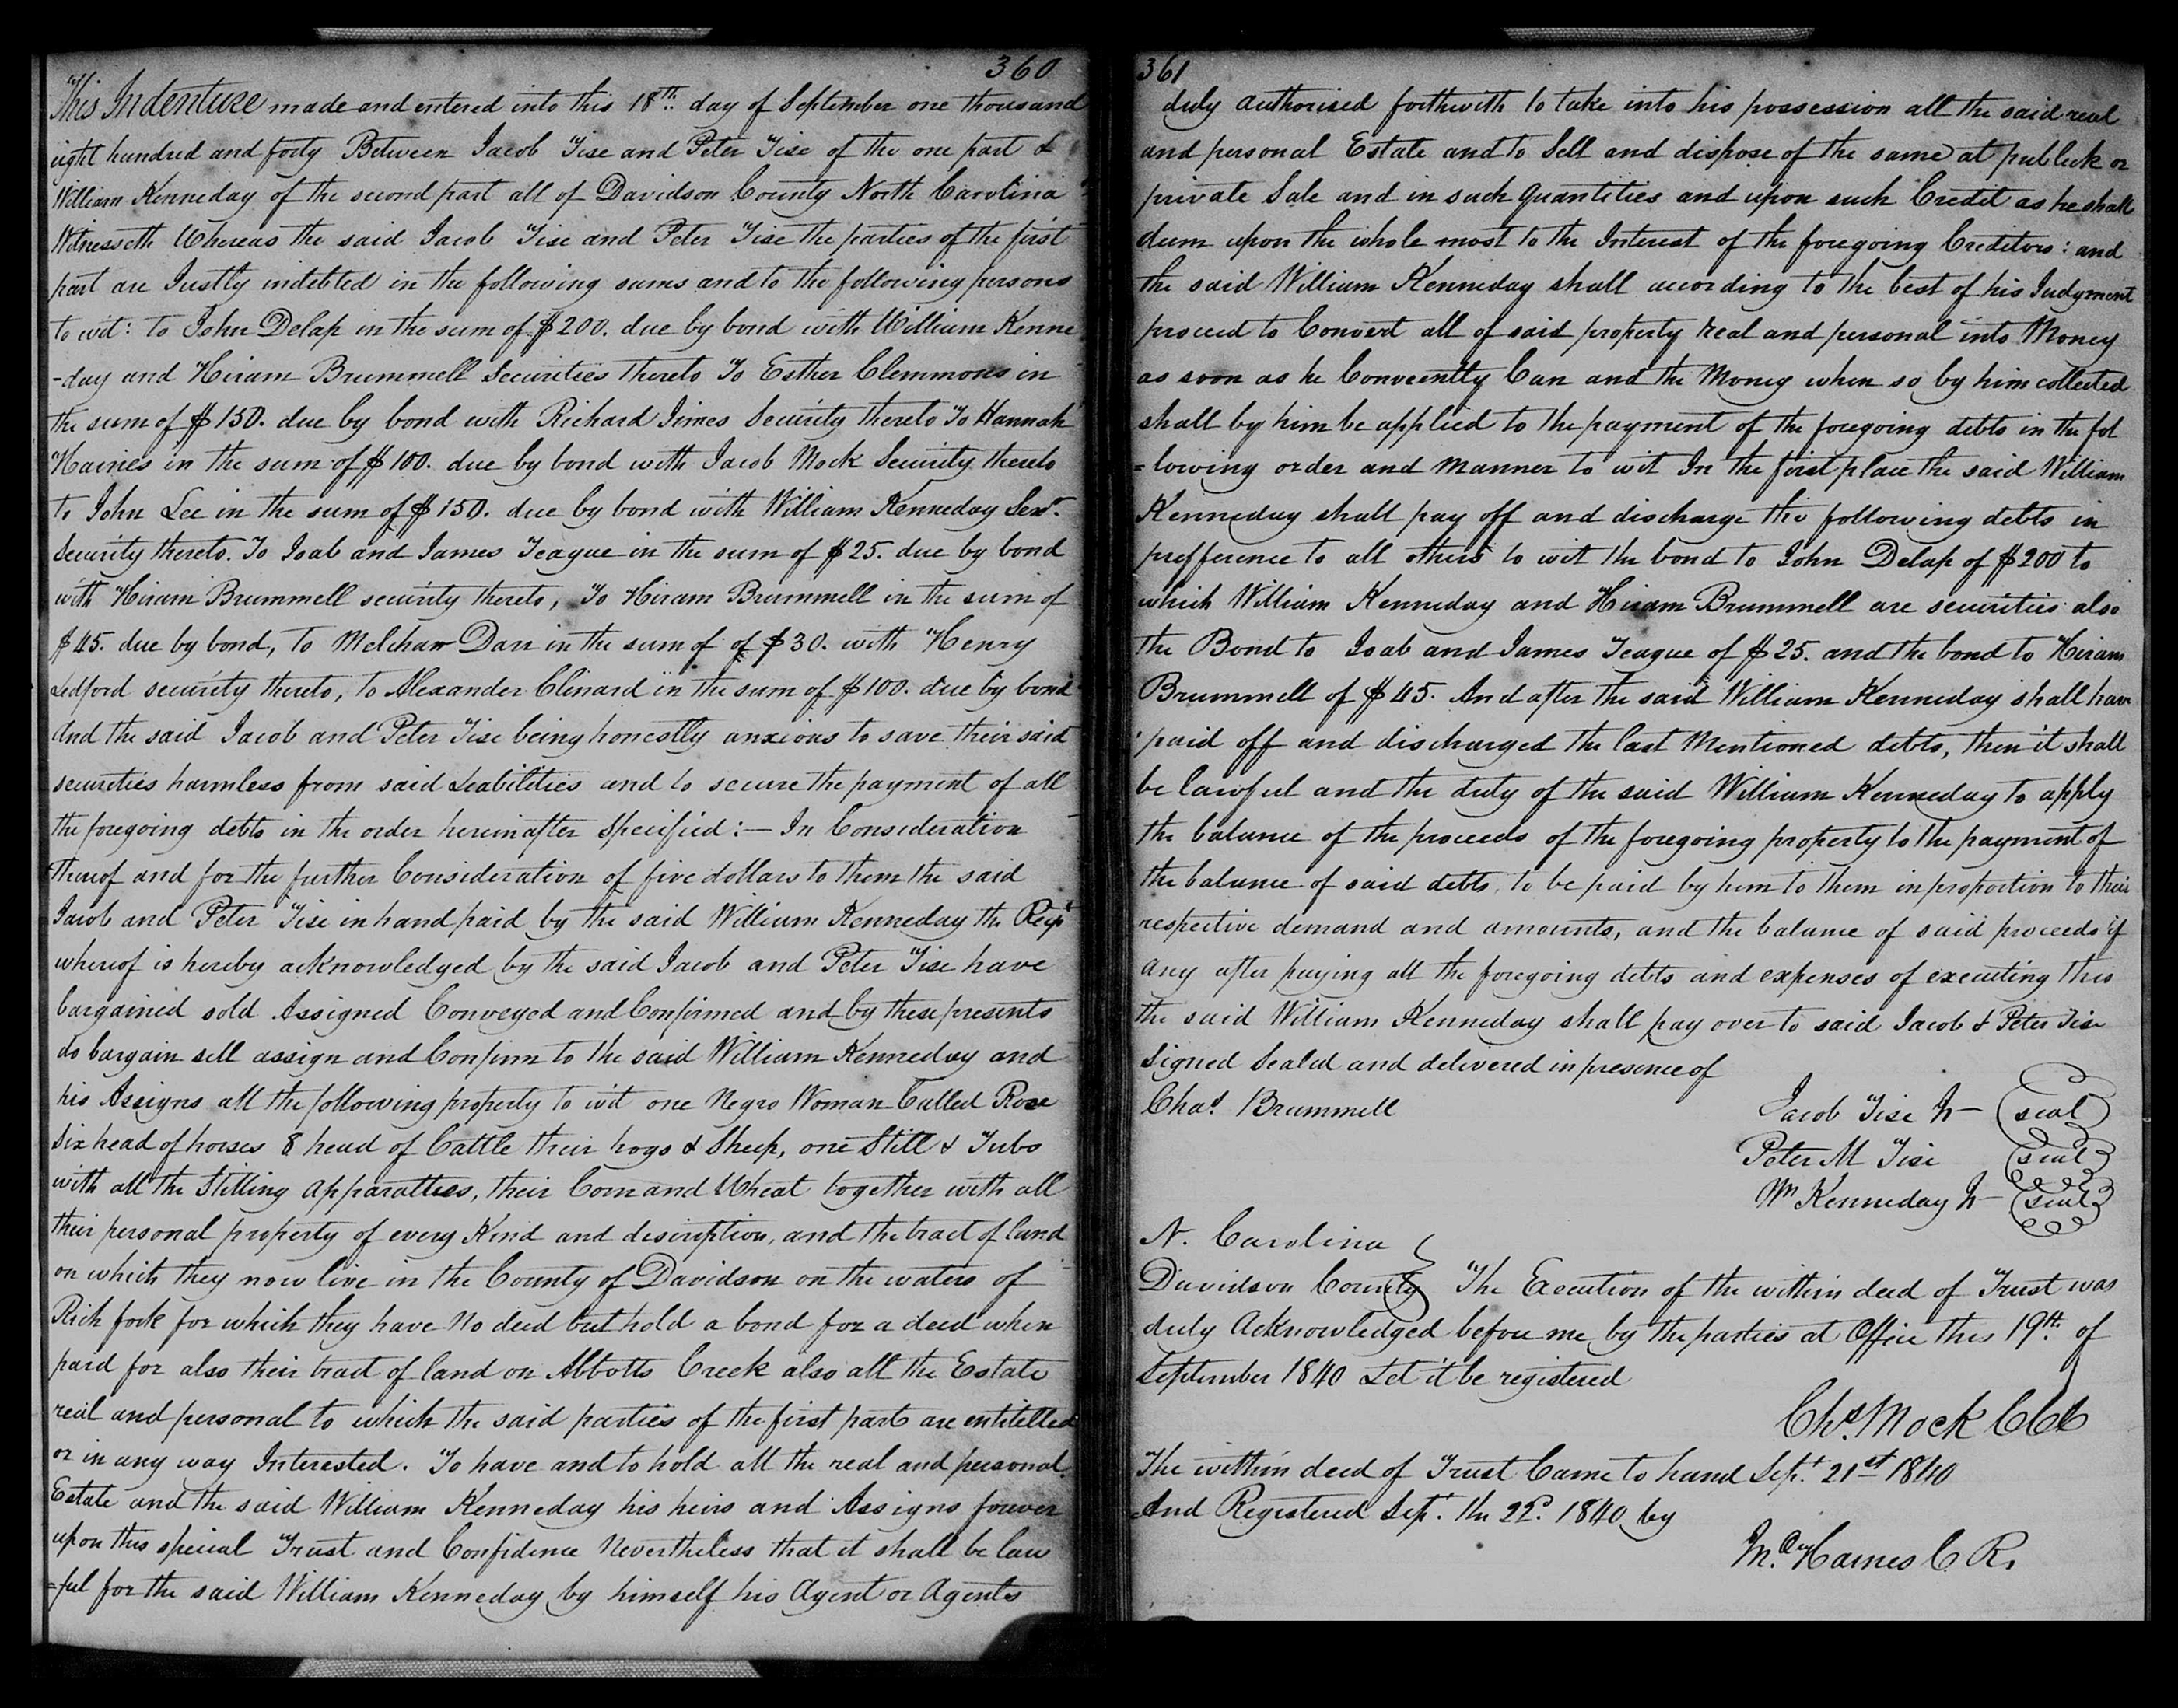 360
This Indenture made and entered into this 18th day of September one thousand
eight hundred and forty Between Jacob Tise and Peter Tise of the one part &
William Kenneday of the second part all of Davidson County North Carolina
Witnesseth Whereas the said Jacob Tise and Peter Tise the parties of the first
part are Justly indebted in the following sums and to the following persons
to wit: to John Delap in the sum of $200. due by bond with William Kenne
-day and Hiram Brummell Securities thereto To Esther Clemmons in
the sum of $150. due by bond with Richard Jimes Security thereto To Hannah
Haines in the sum of $100. due by bond with Jacob Mock Security thereto
to John Lee in the sum of $150. due by bond with William Kenneday Senr.
Security thereto. To Joab and James Teague in the sum of $25. due by bond
with Hiram Brummell security thereto, To Hiram Brummell in the sum of
$45. due by bond, to Melchar Darr in the sum of of $30. with Henry
Ledford security thereto, to Alexander Clinard in the sum of $100. due by bond
And the said Jacob and Peter Tise being honestly anxious to save their said
securities harmless from said Leabilities and to secure the payment of all
the foregoing debts in the order hereinafter Specified:— In Consideration
thereof and for the further Consideration of five dollars to them the said
Jacob and Peter Tise in hand paid by the said William Kenneday the Recpt
whereof is hereby acknowledged by the said Jacob and Peter Tise have
bargained sold Assigned Conveyed and Confirmed and by these presents
do bargain sell assign and Confirm to the said William Kenneday and
his Assigns all the following property to wit one Negro Woman Called Rose
Six head of horses 8 head of Cattle their hogs & Sheep, one Still & Tubs
with all the Stilling Apparattus, their Corn and Wheat together with all
their personal property of every Kind and discription, and the tract of land
on which they now live in the County of Davidson on the waters of
Rich fork for which they have No deed but hold a bond for a deed when
paid for also their tract of land on Abbotts Creek also all the Estate
real and personal to which the said parties of the first part are entitelled
or in any way Interested. To have and to hold all the real and personal
Estate and the said William Kenneday his heirs and Assigns forever
upon this special Trust and Confidence Nevertheless that it shall be law
=ful for the said William Kenneday by himself his Agent or Agents
361
duly authorised forthwith to take into his possession all the said real
and personal Estate and to Sell and dispose of the same at publick or
private Sale and in such quantities and upon such Credit as he shall
deem upon the whole most to the Interest of the foregoing Creditors: and
the said William Kenneday shall according to the best of his Judgment
proceed to Convert all of said property real and personal into Money
as soon as he Conveently Can and the Money when so by him collected
shall by him be applied to the payment of the foregoing debts in the fol
=lowing order and manner to wit In the first place the said William
Kenneday shall pay off and discharge the following debts in
prefference to all others to wit the bond to John Delap of $200 to
which William Kenneday and Hiram Brummell are securities also
the Bond to Joab and James Teague of $25. and the bond to Hiram
Brummell of $45. And after the said William Kenneday shall have
paid off and discharged the last Mentioned debts, then it shall
be lawful and the duty of the said William Kenneday to apply
the balance of the proceeds of the foregoing property to the payment of
the balance of said debts, to be paid by him to them in proportion to their
respective demand and amounts, and the balance of said proceeds if
any after paying all the foregoing debts and expenses of executing this
the said William Kenneday shall pay over to said Jacob & Peter Tise
Signed Sealed and delivered in presence of
Chas. Brummell
Jacob Tise Jr— (seal)
Peter M Tise (seal)
Wm Kenneday Jr— (seal)
N. Carolina
Davidson County The Execution of the within deed of Trust was
duly Acknowledged before me by the parties at Office this 19th of
September 1840 Let it be registered
Chs. Mock CCC
The within deed of Trust Came to hand Sept. 21st 1840
And Registered Sept. the 22d. 1840 by
Haines C. R.